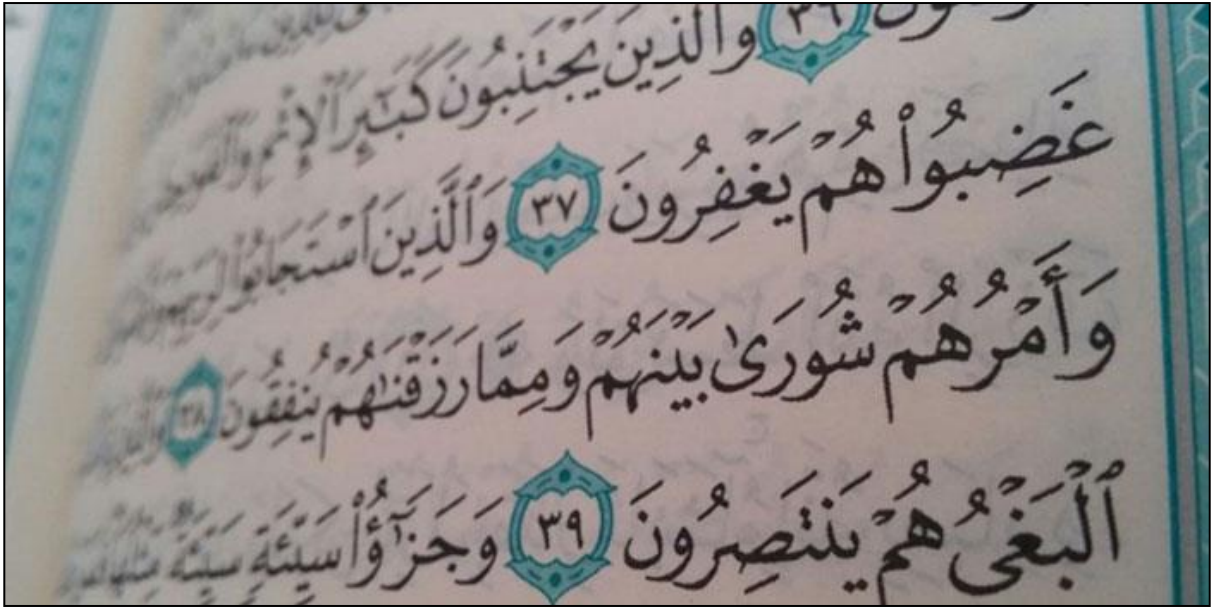 ٣٦ وَٱلَّذِينَ يَجْتَنِبُونَ كَبَـٰٓئِرَ ٱلْإِثْمِ
غَضِبُوا۟ هُمْ يَغْفِرُونَ ٣٧ وَٱلَّذِينَ ٱسْتَجَابُوا۟
وَأَمْرُهُمْ شُورَىٰ بَيْنَهُمْ وَمِمَّا رَزَقْنَـٰهُمْ يُنفِقُونَ ٣٨
ٱلْبَغْىُ هُمْ يَنتَصِرُونَ ٣٩ وَجَزَٰٓؤُا۟ سَيِّئَةٍ سَيِّئَةٌ